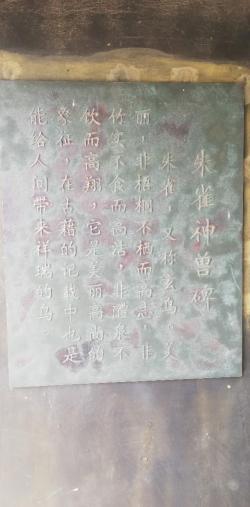 朱雀神兽碑
朱雀，又称玄鸟。美
丽，非梧桐不栖而高志，非
竹实不食而高洁，非醴泉不
饮而高翔，它是美丽高尚的
象征，在古籍的记载中也是
能给人间带来祥瑞的鸟